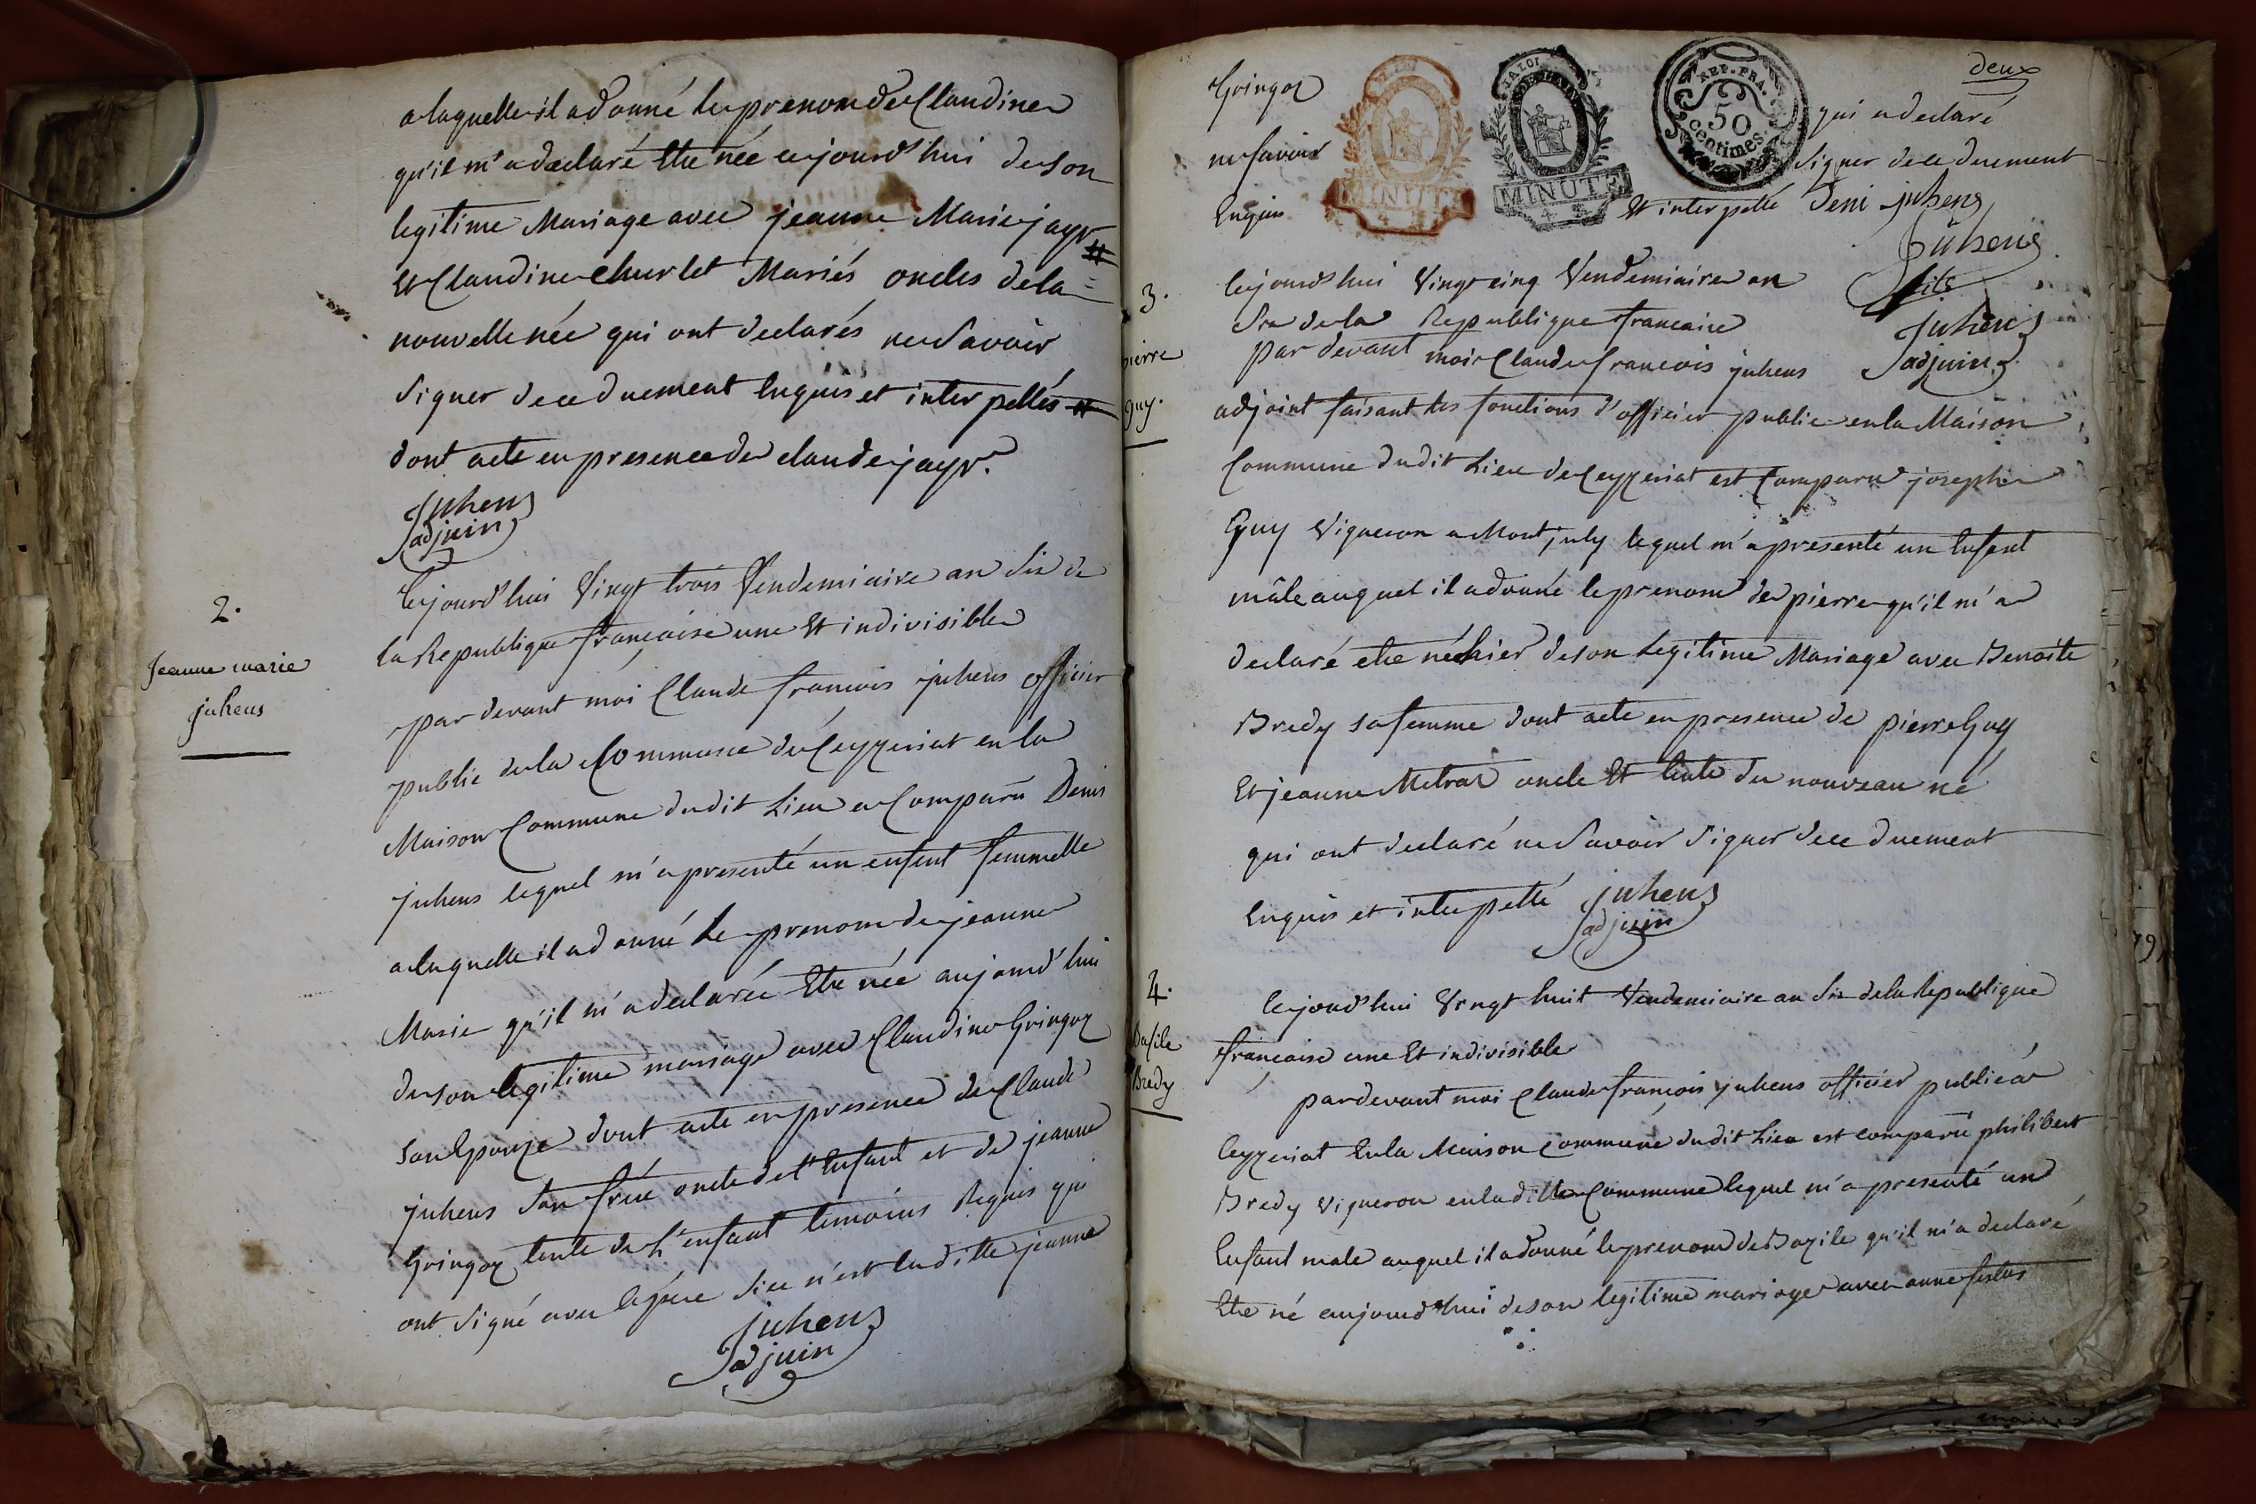 a laquelle il a donné le prenom de Claudine
qu'il m'a declaré Etre née cejourd'hui de son
legitime Mariage avec jeanne Marie jayr
Et Claudine churlet Mariés oncles de la
nouvelle née qui ont declarés ne Savoir
Signer de ce duement Enquis et interpellés
dont acte en presence de claude jayr.
Juhens
adjuin
2.
Jeanne marie
juhens
Cejourd'hui Vingt trois Vendemiaire an Six de
la Republique française une Et indivisible
par devant moi Claude francois juhens officier
public de la Commune de Ceyzeriat en la
Maison Commune dudit Lieu a Comparu Denis
juhens lequel m'a presenté un enfant femmelle
a laquelle il a donné Le prenom de jeanne
Marie qu'il m'a declarée Etre née aujourd'hui
de son legitime mariage avec Claudine Gringoz
son Epouze dont acte en presence de Claude
juhens Son frère oncle de l'Enfant et de jeanne
Gringoz tente de L'enfant temoins Requis qui
ont Signé avec le père Si ce n'est laditte jeanne
Juhens
adjuin
deux
Gringoz qui a declaré
ne savoir Signer de ce duement
Enquis Et interpellé Deni juhens
LA LOI
MINUTE
LA LOI
MINUTE
REP. FRA.
50
centimes.
Juhens
fils
Juhens
adjuin
3.
pierre
guy.
Cejourd'hui Vingt cinq Vendemiaire an
Six de la Republique francaise
par devant moi Claude francois juhens
adjoint faisant les fonctions d'officier public en la Maison
Commune dudit Lieu de Ceyzeriat est Comparu joseph
Guy Vigneron a Mont july lequel m'a presenté un Enfant
mâle auquel il a donné le prenom de pierre qu'il m'a
declaré etre né hier de son Legitime Mariage avec Benoite
Bredy sa femme dont acte en presence de pierre Guy
Et jeanne Metras oncle Et tente du nouveau né
qui ont declaré ne Savoir Signer de ce duement
Enquis et interpellé juhens
adjuin
4.
Basile
Bredy
Cejourd'hui Vingt huit Vendemiaire an Six de la Republique
française une Et indivisible
pardevant moi Claude françois juhens officier public a
Ceyzeriat En la Maison Commune dudit Lieu est comparu philibert
Bredy Vigneron en laditte Commune lequel m'a presenté un
Enfant male auquel il a donné le prenom de Bazile qu'il m'a declaré
Etre né aujourd'hui de son legitime mariage avec anne